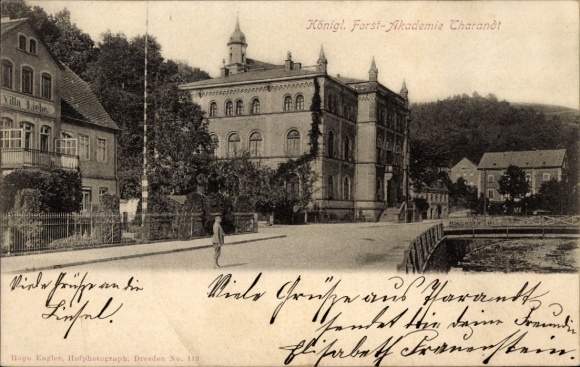 Königl. Forst-Akademie Tharandt
Villa Liebe
Viele Grüße an die
Liesel.
Viele Grüße aus Tharandt
sendet dir deine Freundin
Elisabeth Frauenstein.
Hugo Engler, Hofphotograph, Dresden No. 113